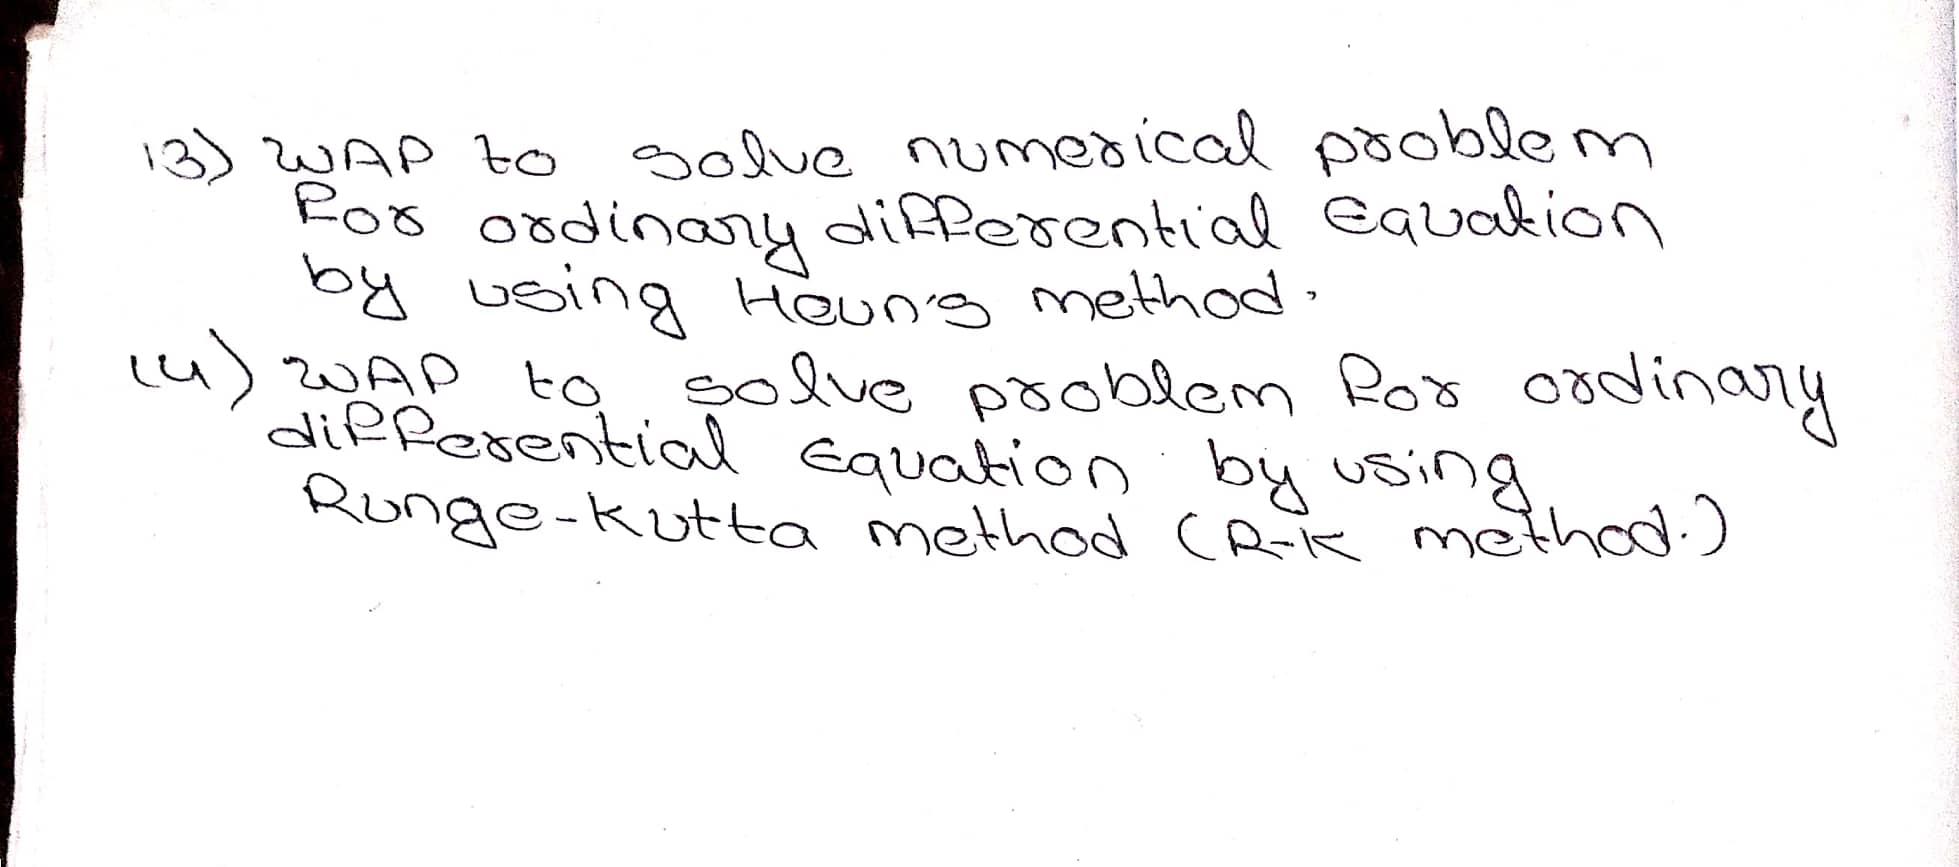 13) WAP to solve numerical problem
for ordinary differential Equation
by using Heun's method.
14) WAP to solve problem for ordinary
differential Equation by using
Runge-Kutta method (R-K method.)